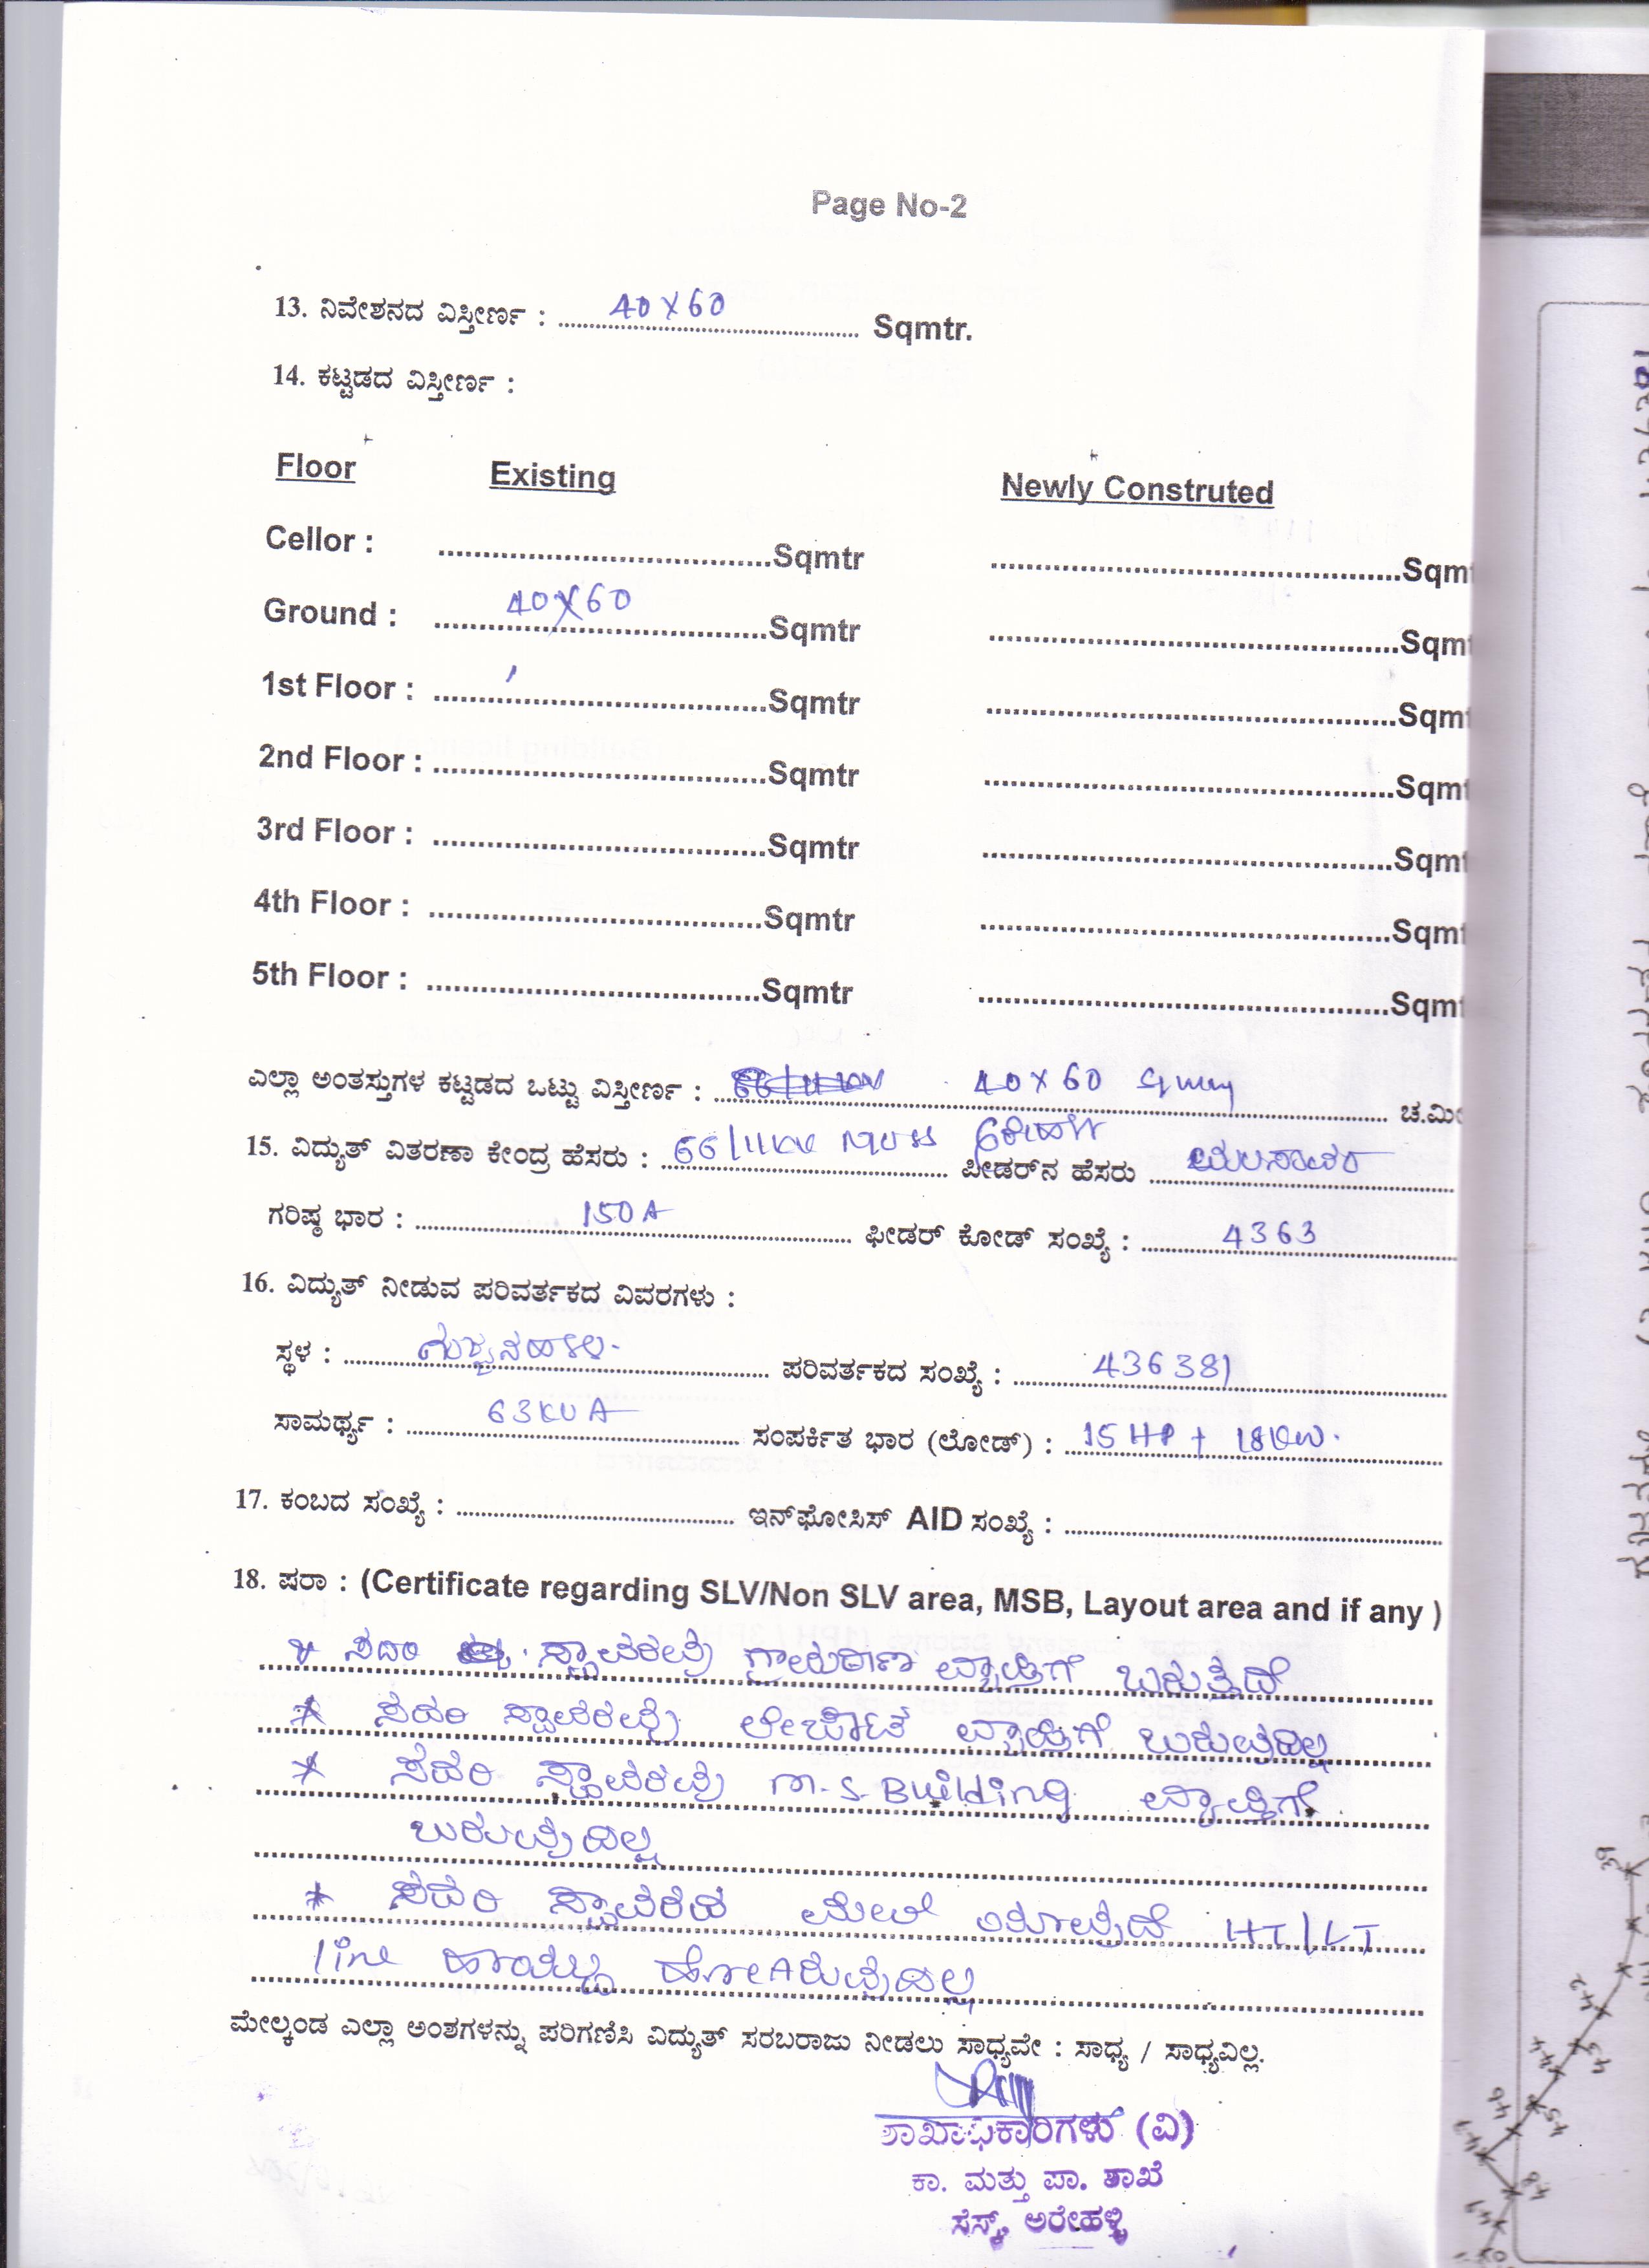 Page No-2
13. ನಿವೇಶನದ ವಿಸ್ತೀರ್ಣ : 40 X 60 Sqmtr.
14. ಕಟ್ಟಡದ ವಿಸ್ತೀರ್ಣ :
Floor Existing Newly Construted
Cellor : Sqmtr Sqm
Ground : 40 X 60 Sqmtr Sqm
1st Floor : Sqmtr Sqm
2nd Floor : Sqmtr Sqm
3rd Floor : Sqmtr Sqm
4th Floor : Sqmtr Sqm
5th Floor : Sqmtr Sqm
ಎಲ್ಲಾ ಅಂತಸ್ತುಗಳ ಕಟ್ಟಡದ ಒಟ್ಟು ವಿಸ್ತೀರ್ಣ : 40 X 60 ಚ.ಮೀ
15. ವಿದ್ಯುತ್ ವಿತರಣಾ ಕೇಂದ್ರ ಹೆಸರು : 66/11KV MUSS ಪೀಡರ್‌ನ ಹೆಸರು
ಗರಿಷ್ಠ ಭಾರ : 150 A ಫೀಡರ್ ಕೋಡ್ ಸಂಖ್ಯೆ : 4363
16. ವಿದ್ಯುತ್ ನೀಡುವ ಪರಿವರ್ತಕದ ವಿವರಗಳು :
ಸ್ಥಳ : ಪರಿವರ್ತಕದ ಸಂಖ್ಯೆ : 436381
ಸಾಮರ್ಥ್ಯ : 63 KVA ಸಂಪರ್ಕಿತ ಭಾರ (ಲೋಡ್) : 15 HP + 18 KW.
17. ಕಂಬದ ಸಂಖ್ಯೆ : ಇನ್‌ಫೋಸಿಸ್ AID ಸಂಖ್ಯೆ :
18. ಷರಾ : (Certificate regarding SLV/Non SLV area, MSB, Layout area and if any )
* ಸದರಿ ಸ್ಥಾವರವು ಗ್ರಾಮಠಾಣಾ ವ್ಯಾಪ್ತಿಗೆ ಬರುತ್ತದೆ
* ಸದರಿ ಸ್ಥಾವರವು ಲೇಔಟ್ ವ್ಯಾಪ್ತಿಗೆ ಬರುವುದಿಲ್ಲ
* ಸದರಿ ಸ್ಥಾವರವು M.S. Building ವ್ಯಾಪ್ತಿಗೆ
ಬರುವುದಿಲ್ಲ
* ಸದರಿ ಸ್ಥಾವರದ ಮೇಲೆ ಯಾವುದೆ HT/LT
line ಹಾಯ್ದು ಹೋಗಿರುವುದಿಲ್ಲ
ಮೇಲ್ಕಂಡ ಎಲ್ಲಾ ಅಂಶಗಳನ್ನು ಪರಿಗಣಿಸಿ ವಿದ್ಯುತ್ ಸರಬರಾಜು ನೀಡಲು ಸಾಧ್ಯವೇ : ಸಾಧ್ಯ / ಸಾಧ್ಯವಿಲ್ಲ.
ಶಾಖಾಧಿಕಾರಿಗಳು (ವಿ)
ಕಾ. ಮತ್ತು ಪಾ. ಶಾಖೆ
ಸೆಸ್ಕ್, ಅರೇಹಳ್ಳಿ